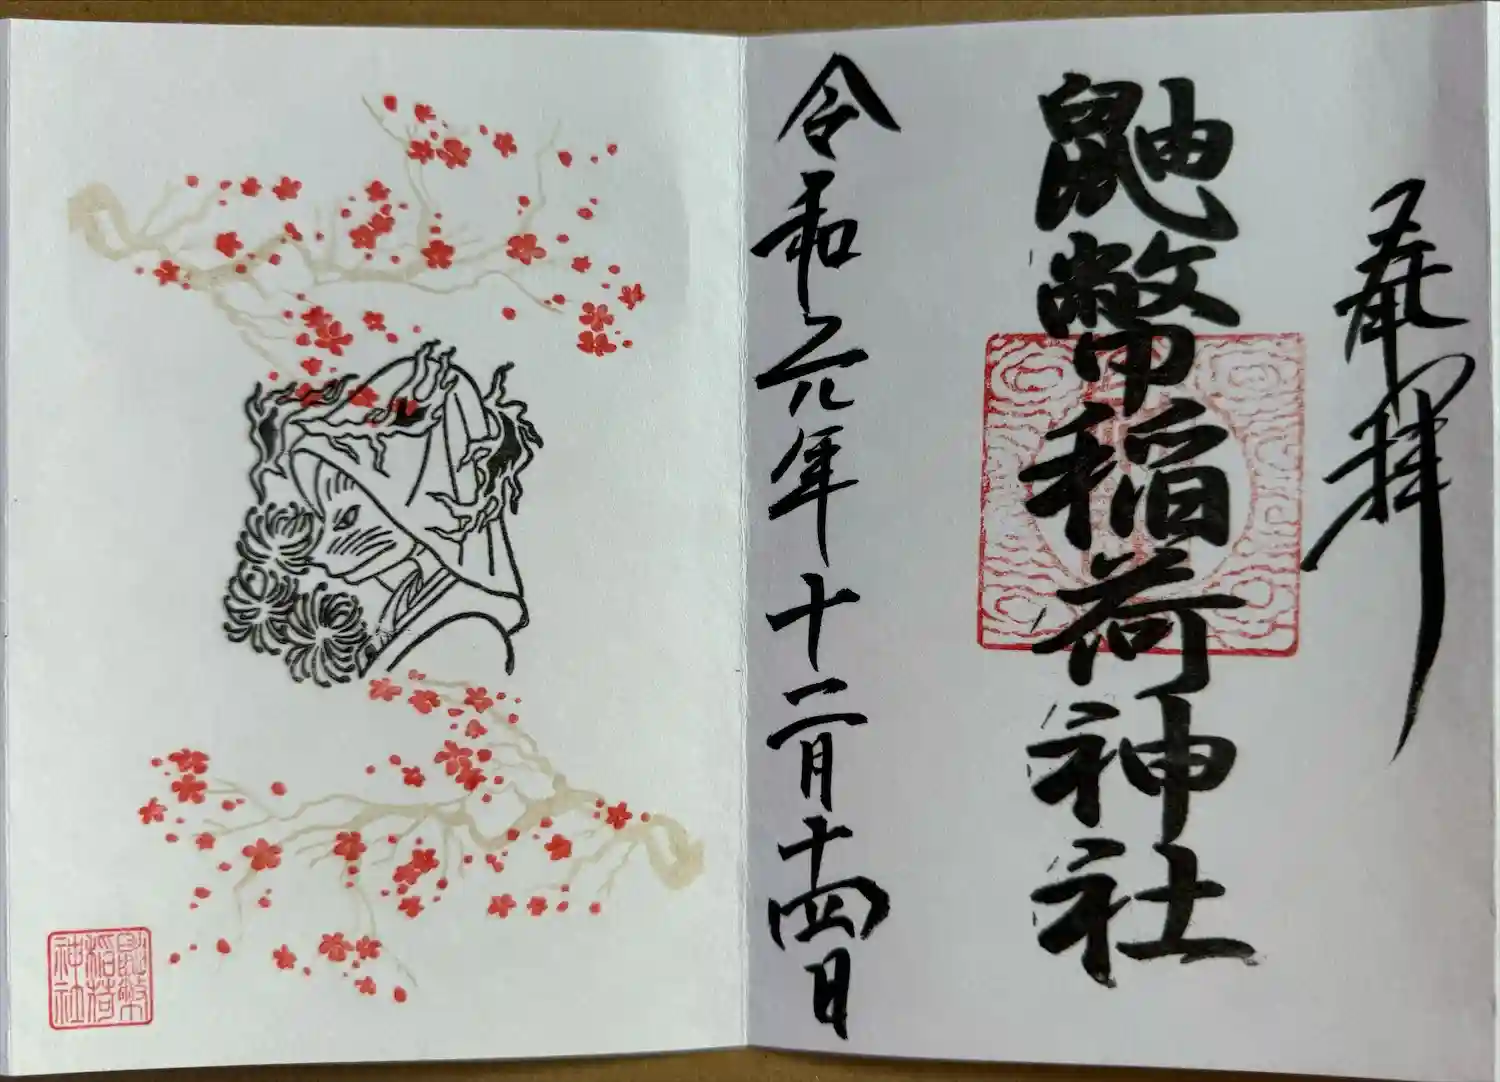 奉拝
鼬幣稲荷神社
令和六年十二月十四日
鼬幣
稲荷
神社